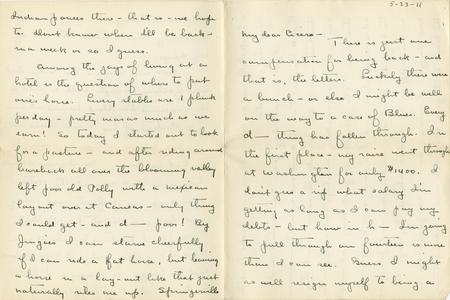 Indian ponies there – that is – we hope
to. Don't know when I'll be back –
in a week or so I guess.
Among the joys of living at a
hotel is the question of where to put
one's horse. Livery stables are 1 plunk
per day – pretty near as much as we
earn! So today I started out to look
for a pasture – and after riding around
bareback all over the blooming valley
left poor old Polly with a mexican
lay out over at Cansas – only thing
I could get – and d— poor! By
Jingoes I can starve cheerfully
if I can ride a fat horse, but leaving
a horse in a lay-out like that just
naturally riles me up. Springerville
5-23-11
My dear Cicero –
There is just one
compensation for being back – and
that is, the letters. Luckily there were
a bunch – or else I might be well
on the way to a case of Blues. Every
d— thing has fallen through. In
the first place – my raise went through
at Washington for only $1400. I
don't give a rip what salary I'm
getting as long as I can pay my
debts – but how in h— I'm going
to pull through on fourteen is more
than I can see. Guess I might
as well resign myself to being a